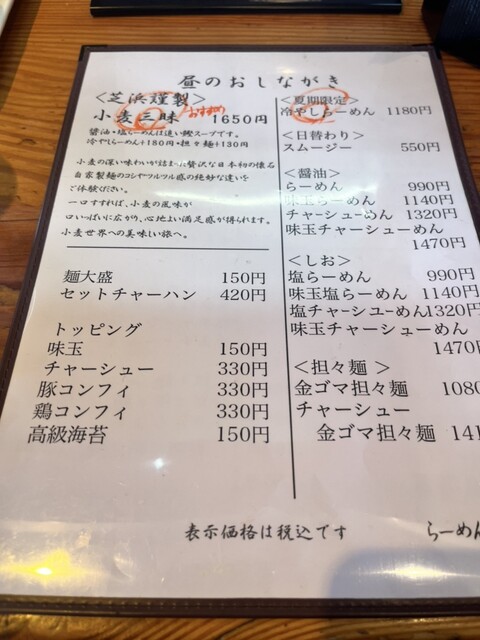 昼のおしながき
<芝浜謹製>
おすすめ
小麦三昧 1650円
醤油・塩らーめんは追い鰹スープです。
冷やしらーめん+180円・担々麺+130円
小麦の深い味わいが詰まった贅沢な日本初の懐石
自家製麺のコシやツルツル感の絶妙な違いを
ご体験ください。
一口すすれば、小麦の風味が
口いっぱいに広がり、心地よい満足感が得られます。
小麦世界への美味しい旅へ。
麺大盛 150円
セットチャーハン 420円
トッピング
味玉 150円
チャーシュー 330円
豚コンフィ 330円
鶏コンフィ 330円
高級海苔 150円
<夏期限定>
冷やしらーめん 1180円
<日替わり>
スムージー 550円
<醤油>
らーめん 990円
味玉らーめん 1140円
チャーシューめん 1320円
味玉チャーシューめん
1470円
<しお>
塩らーめん 990円
味玉塩らーめん 1140円
塩チャーシューめん1320円
味玉チャーシューめん
1470円
<担々麺>
金ゴマ担々麺 1080
チャーシュー
金ゴマ担々麺 141
表示価格は税込です
らーめん